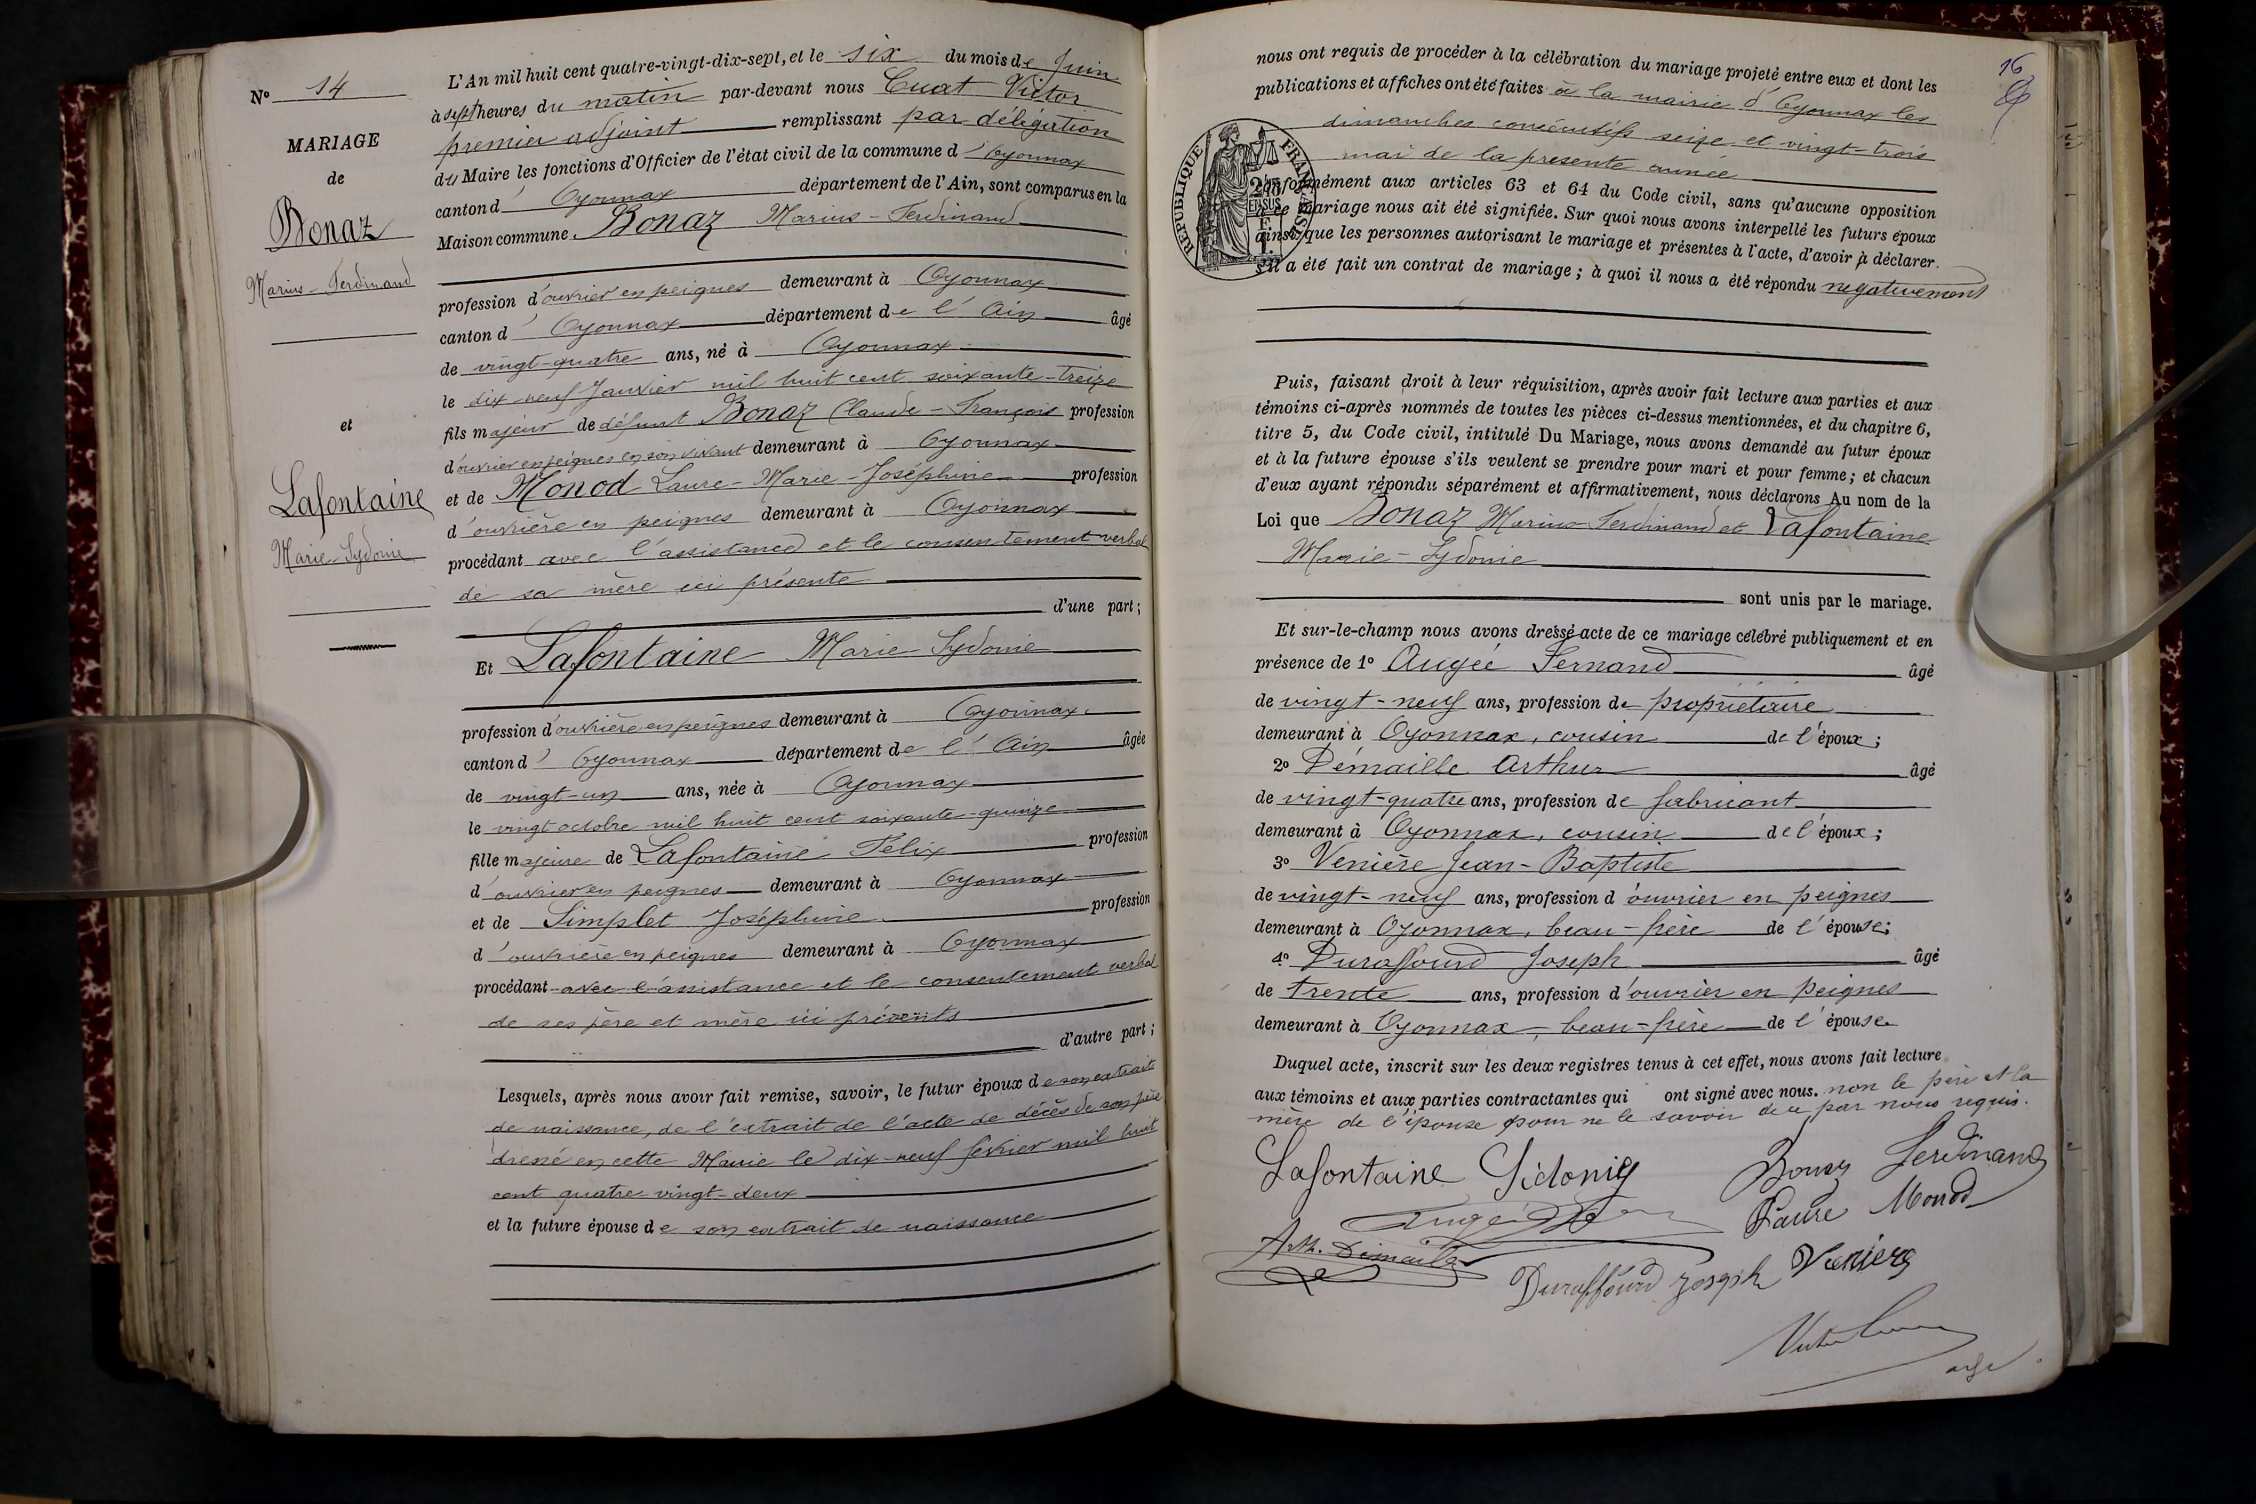 N° 14
MARIAGE
de
Bonaz
Marius-Ferdinand
et
Lafontaine
Marie-Sydonie
L'An mil huit cent quatre-vingt-dix-sept, et le six du mois de Juin
à sept heures du matin par-devant nous Cuat Victor
premier adjoint remplissant par délégation
du Maire les fonctions d'Officier de l'état civil de la commune d'Oyonnax
canton d'Oyonnax département de l'Ain, sont comparus en la
Maison commune. Bonaz Marius-Ferdinand
profession d'ouvrier en peignes demeurant à Oyonnax
canton d'Oyonnax département de l'Ain âgé
de vingt-quatre ans, né à Oyonnax
le dix-neuf Janvier mil huit cent soixante-treize
fils majeur de défunt Bonaz Claude-François profession
d'ouvrier en peignes en son vivant demeurant à Oyonnax
et de Monod Laure-Marie-Joséphine profession
d'ouvrière en peignes demeurant à Oyonnax
procédant avec l'assistance et le consentement verbal
de sa mère ici présente
d'une part;
Et Lafontaine Marie Sydonie
profession d'ouvrière en peignes demeurant à Oyonnax
canton d'Oyonnax département de l'Ain âgée
de vingt-un ans, née à Oyonnax
le vingt octobre mil huit cent soixante-quinze
fille majeure de Lafontaine Félix profession
d'ouvrier en peignes demeurant à Oyonnax
et de Simplet Joséphine profession
d'ouvrière en peignes demeurant à Oyonnax
procédant avec l'assistance et le consentement verbal
de ses père et mère ici présents
d'autre part;
Lesquels, après nous avoir fait remise, savoir, le futur époux de son extrait
de naissance, de l'extrait de l'acte de décès de son père
dressé en cette Mairie le dix-neuf février mil huit
cent quatre vingt-deux
et la future épouse de son extrait de naissance
16
nous ont requis de procéder à la célébration du mariage projeté entre eux et dont les
publications et affiches ont été faites à la mairie d'Oyonnax les
dimanches consécutifs seize et vingt-trois
mai de la présente année
REPUBLIQUE FRANÇAISE
conformément aux articles 63 et 64 du Code civil, sans qu'aucune opposition
à ce mariage nous ait été signifiée. Sur quoi nous avons interpellé les futurs époux
ainsi que les personnes autorisant le mariage et présentes à l'acte, d'avoir à déclarer.
s'il a été fait un contrat de mariage; à quoi il nous a été répondu négativement
Puis, faisant droit à leur réquisition, après avoir fait lecture aux parties et aux
témoins ci-après nommés de toutes les pièces ci-dessus mentionnées, et du chapitre 6,
titre 5, du Code civil, intitulé Du Mariage, nous avons demandé au futur époux
et à la future épouse s'ils veulent se prendre pour mari et pour femme; et chacun
d'eux ayant répondu séparément et affirmativement, nous déclarons Au nom de la
Loi que Bonaz Marius-Ferdinand et Lafontaine
Marie-Sydonie
sont unis par le mariage.
Et sur-le-champ nous avons dressé acte de ce mariage célébré publiquement et en
présence de 1° Augée Fernand âgé
de vingt-neuf ans, profession de propriétaire
demeurant à Oyonnax, cousin de l'époux;
2° Démaille Arthur âgé
de vingt-quatre ans, profession de fabricant
demeurant à Oyonnax, cousin de l'époux;
3° Venière Jean-Baptiste
de vingt-neuf ans, profession d'ouvrier en peignes
demeurant à Oyonnax, beau-frère de l'épouse;
4° Duraffourd Joseph âgé
de trente ans, profession d'ouvrier en peignes
demeurant à Oyonnax, beau-frère de l'épouse.
Duquel acte, inscrit sur les deux registres tenus à cet effet, nous avons fait lecture
aux témoins et aux parties contractantes qui ont signé avec nous. non le père et la
mère de l'épouse pour ne le savoir de ce par nous requis.
Lafontaine Sidonie Bonaz Ferdinand
Augée Laure Monod
Arth. Démaille Duraffourd Joseph Venière